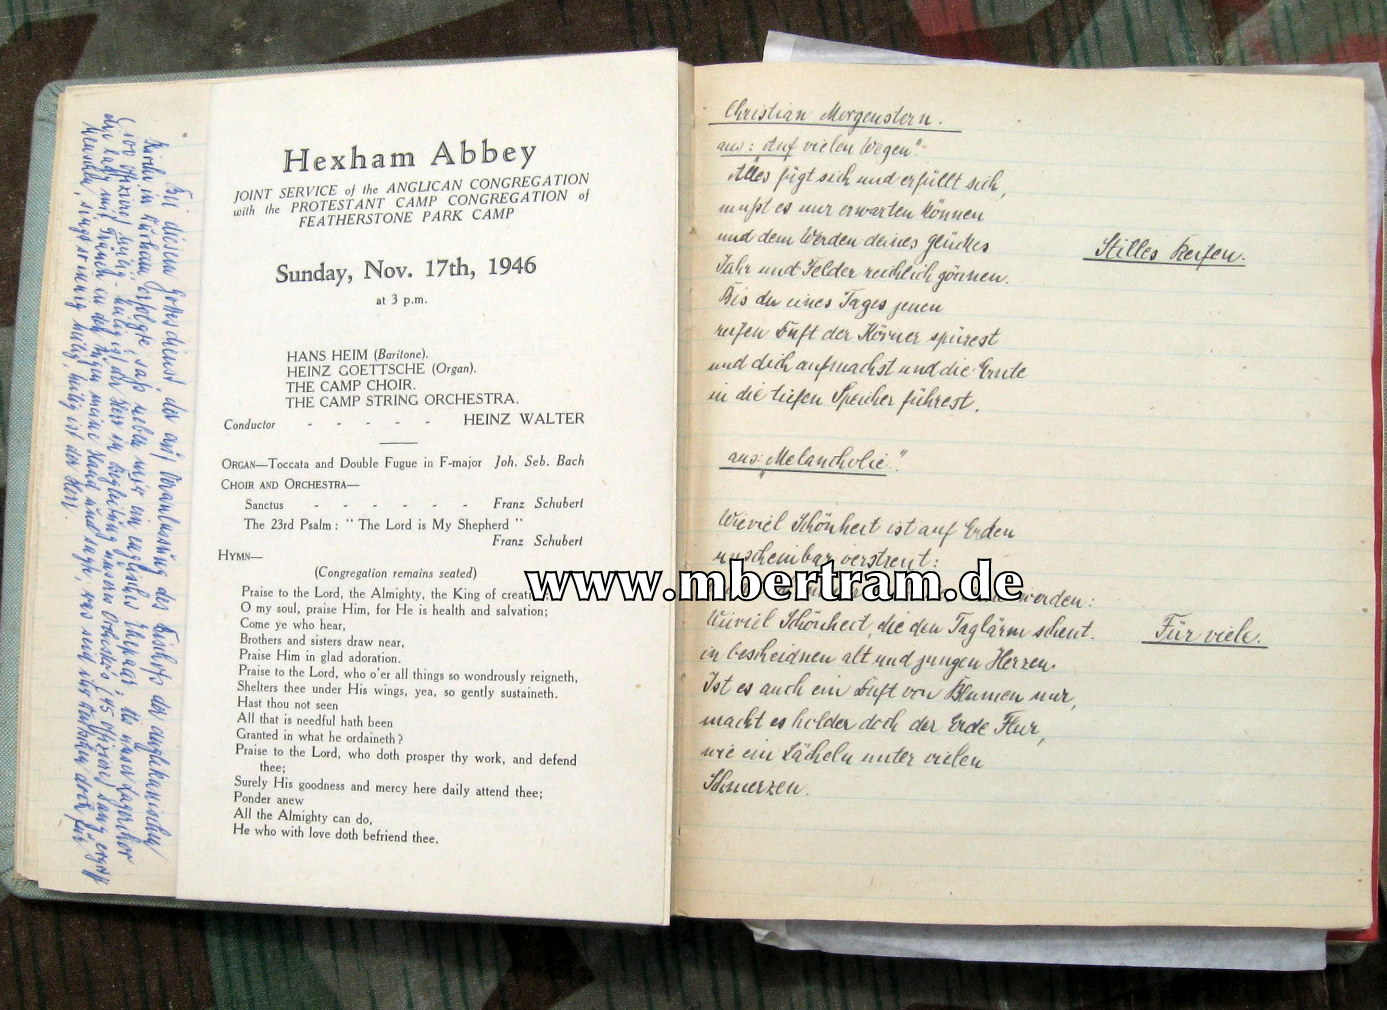 Bei diesem Gottesdienst, der auf Veranlassung des Bischofs der anglikanischen
Kirche in Durham erfolgte, saß neben mir ein englisches Ehepaar; als unser Lagerchor
(100 Offiziere) heilig - heilig ist der Herr in Begleitung unseres Orchesters (45 Offiziere) sang, ergriff
die Lady mit Tränen in den Augen meine Hand und sagte, was seid ihr Deutschen doch für
Menschen, singt so innig heilig, heilig ist der Herr.
Hexham Abbey
JOINT SERVICE of the ANGLICAN CONGREGATION
with the PROTESTANT CAMP CONGREGATION of
FEATHERSTONE PARK CAMP
Sunday, Nov. 17th, 1946
at 3 p.m.
HANS HEIM (Baritone).
HEINZ GOETTSCHE (Organ).
THE CAMP CHOIR.
THE CAMP STRING ORCHESTRA.
Conductor - - - - - HEINZ WALTER
ORGAN—Toccata and Double Fugue in F-major Joh. Seb. Bach
CHOIR AND ORCHESTRA—
Sanctus - - - - - - Franz Schubert
The 23rd Psalm : " The Lord is My Shepherd "
Franz Schubert
HYMN—
(Congregation remains seated)
Praise to the Lord, the Almighty, the King of creat
O my soul, praise Him, for He is health and salvation;
Come ye who hear,
Brothers and sisters draw near,
Praise Him in glad adoration.
Praise to the Lord, who o'er all things so wondrously reigneth,
Shelters thee under His wings, yea, so gently sustaineth.
Hast thou not seen
All that is needful hath been
Granted in what he ordaineth?
Praise to the Lord, who doth prosper thy work, and defend
thee;
Surely His goodness and mercy here daily attend thee;
Ponder anew
All the Almighty can do,
He who with love doth befriend thee.
Christian Morgenstern.
aus: Auf vielen Wegen"
Alles fügt sich und erfüllt sich,
mußt es nur erwarten können
und dem Werden deines Glückes
Jahr und Felder reichlich gönnen.
Stilles Reifen.
Bis du eines Tages jenen
reifen Duft der Körner spürest
und dich aufmachst und die Ernte
in die tiefen Speicher führest.
aus: "Melancholie"
Wieviel Schönheit ist auf Erden
unscheinbar verstreut:
werden:
Wieviel Schönheit, die den Taglärm scheut.
Für viele.
in bescheidnen alt und jungen Herzen.
Ist es auch ein Duft von Blumen nur,
macht es holder doch der Erde Flur,
wie ein Lächeln unter vielen
Schmerzen.
www.mbertram.de